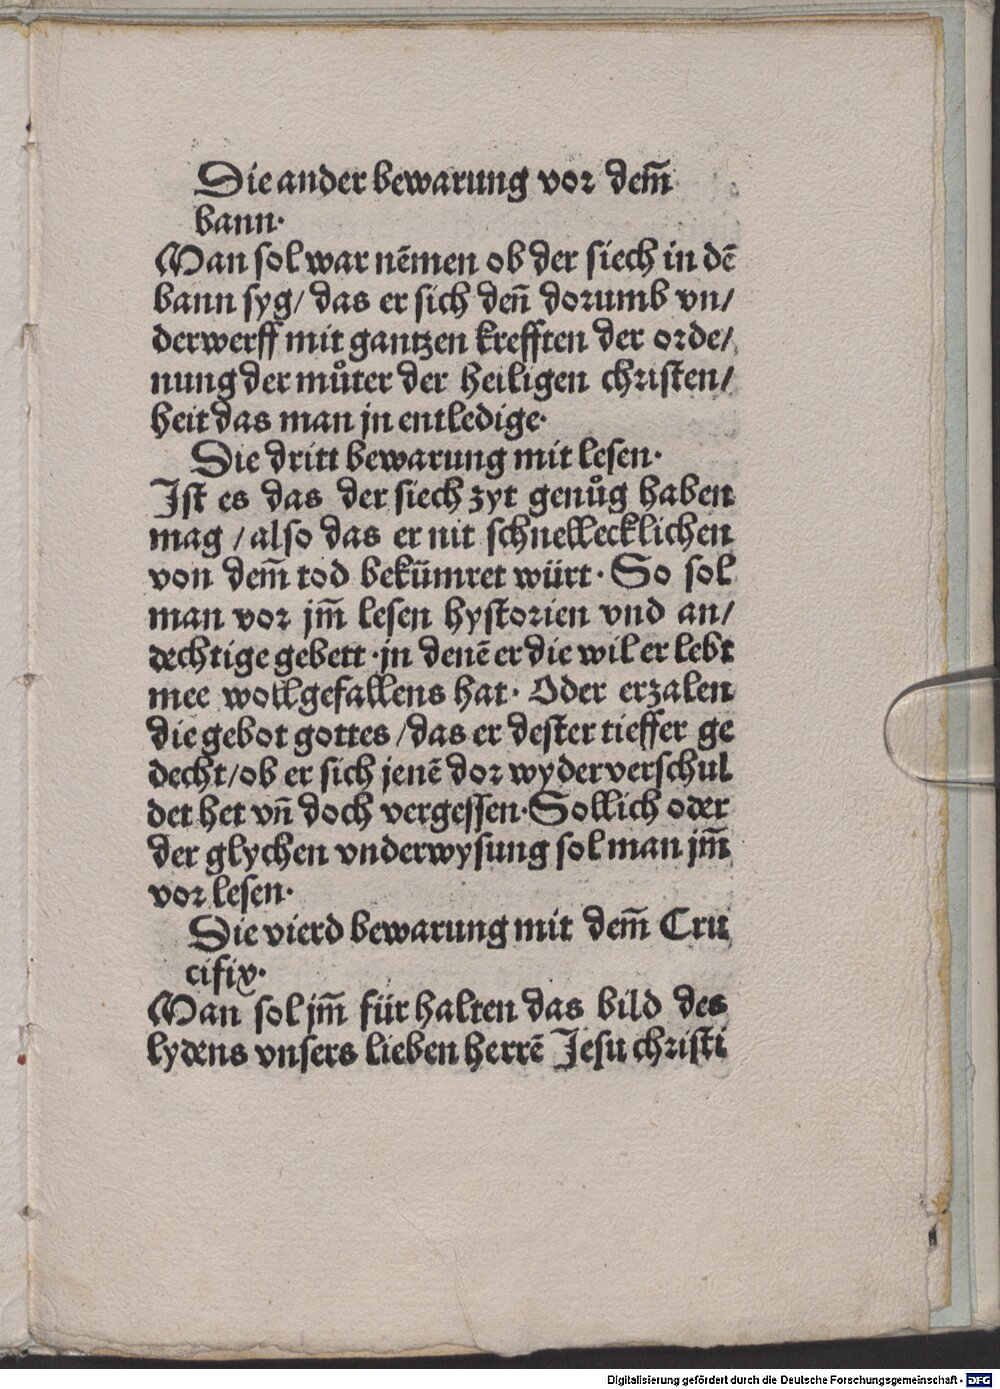 Die ander bewarung vor dem̄
bann·
Man sol war nēmen ob der siech in dē
bann syg/ das er sich den̄ dorumb vn/
derwerff mit gantzen krefften der orde/
nung der můter der heiligen christen/
heit das man jn entledige·
Die dritt bewarung mit lesen·
Ist es das der siech zyt genůg haben
mag /also das er nit schnellecklichen
von dem̄ tod bekūmret würt· So sol
man vor jm̄ lesen hystorien vnd an/
dechtige gebett ·jn denē er die wil er lebt
mee wollgefallens hat· Oder erzalen
die gebot gottes /das er dester tieffer ge
decht/ob er sich jenē dor wyder verschul
det het vn̄ doch vergessen·Sollich oder
der glychen vnderwysung sol man jm̄
vor lesen·
Die vierd bewarung mit dem̄ Cru
cifix·
Man sol jm̄ für halten das bild des
lydens vnsers lieben herrē Jesu christi
Digitalisierung gefördert durch die Deutsche Forschungsgemeinschaft - DFG